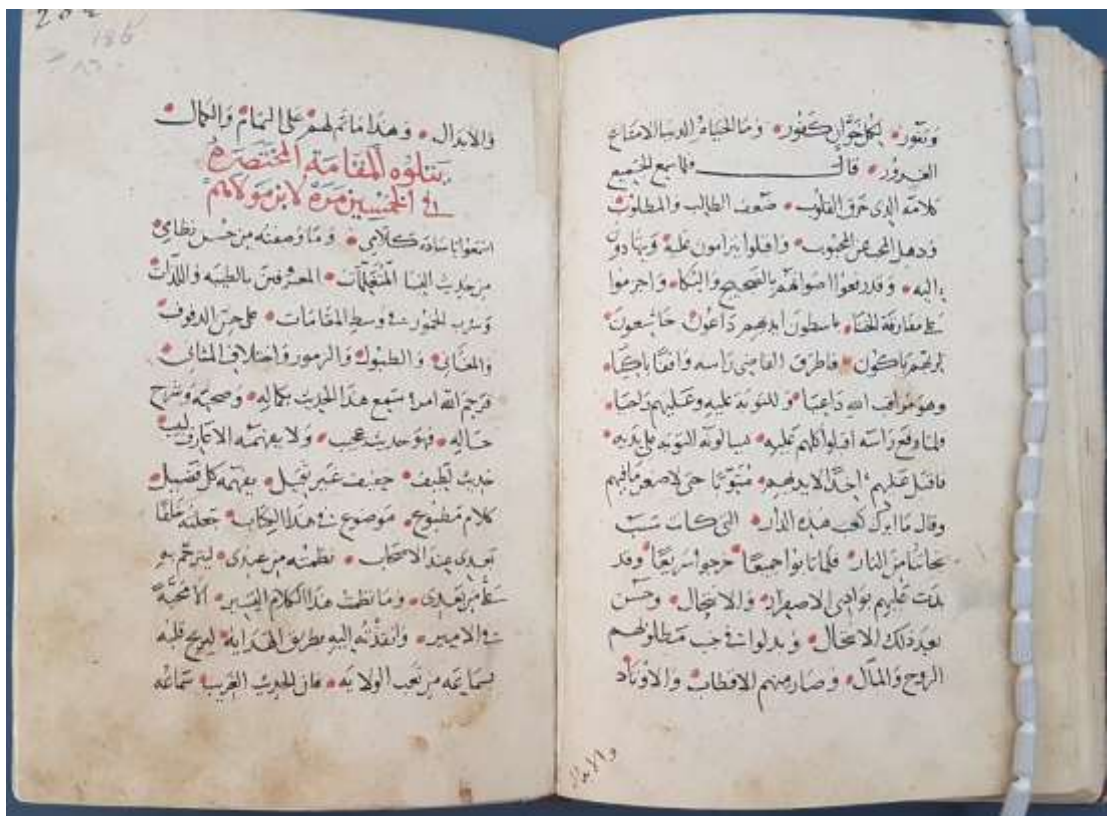 ونفور لكل خوان كفور وما الحياة الدنيا الا متاع
الغرور قال فلما سمع الجميع
كلامه الذي خرق القلوب ضعف الطالب والمطلوب
وذهل المحب عن المحبوب واقبلوا يترامون عليه
اليه وقد رفعوا اصواتهم بالضجيج والبكاء
على مفارقة الخنا باسطون ايديهم داعون خاشعون
لربهم باكون فاطرق القاضي راسه واقفا باكيا
وهو مواقف الله داعيا وللتوبة عليه وعليهم
فلما رفع راسه اقبلوا كلهم عليه يسالونه التوبة على يديه
فاقبل عليهم اخذا لايديهم متوبا حتى لاصغر ما فيهم
وقال ما ابرك كعب هذه الدار التي كانت سبب
نجاتنا من النار فلما تابوا جميعا خرجوا سريعا وقد
بدت عليهم نواهي الاصفرار والانتحال وحسن
بعد ذلك الانتحال وبدلوا في حب مطلوبهم
الروح والمال وصار منهم الاقطاب والاوتاد
والابدال
والابدال وهذا ما تم لهم على التمام والكمال
يتلوه المقامة المختصرة
في الخمسين مرة لابن مولاهم
اسمعوا يا سادة كلامي وما وصفته من حسن نظامي
من حديث النسا المتقيلات المعترفين بالطيبة واللذات
وشرب الخمور في وسط المقامات على حس الدفوف
والمغاني والطبول والزمور واختلاف المثاني
فرحم الله امرء سمع هذا الحديث بكماله وصحبته وشرح
حاله فهو حديث عجيب ولا يفهمه الا عارف لبيب
حديث لطيف خفيف غير ثقيل يفهمه كل فضيل
كلام مطبوع موضوع في هذا الكتاب جعلته
بعدي عند الاصحاب نظمته من عندي ليترحم به
من بعدي وما نظمت هذا الكلام اليسير الا محبة
في الامير وانفذته اليه بطريق الهداية ليريح قلبه
بسماعه من تعب الولاية فان الحديث الغريب سماعه